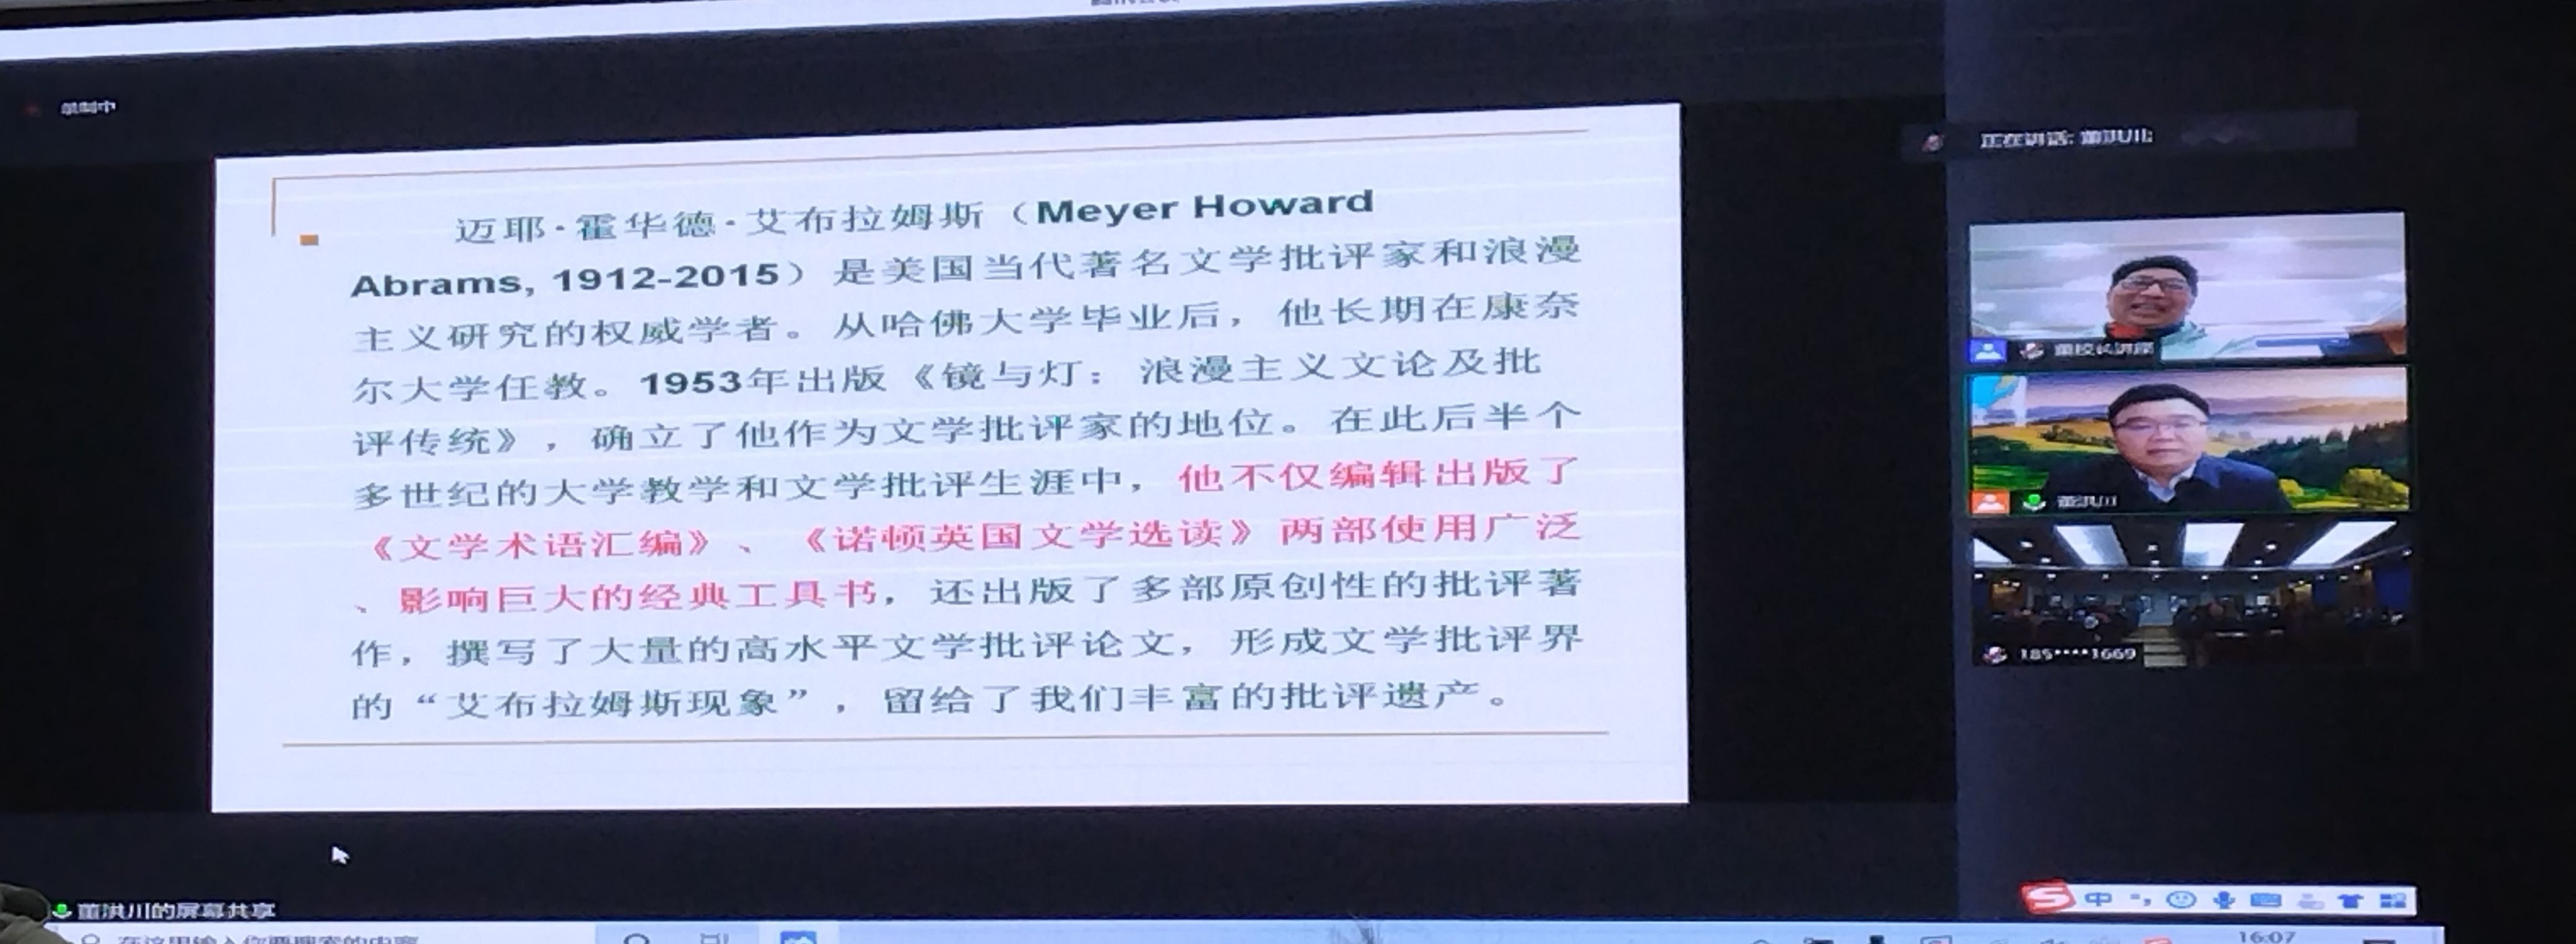 录制中
正在讲话: 董洪川;
迈耶·霍华德·艾布拉姆斯（Meyer Howard
Abrams, 1912-2015）是美国当代著名文学批评家和浪漫
主义研究的权威学者。从哈佛大学毕业后，他长期在康奈
尔大学任教。1953年出版《镜与灯：浪漫主义文论及批
评传统》，确立了他作为文学批评家的地位。在此后半个
多世纪的大学教学和文学批评生涯中，他不仅编辑出版了
《文学术语汇编》、《诺顿英国文学选读》两部使用广泛
、影响巨大的经典工具书，还出版了多部原创性的批评著
作，撰写了大量的高水平文学批评论文，形成文学批评界
的“艾布拉姆斯现象”，留给了我们丰富的批评遗产。
董校长讲座
董洪川
185****1669
中
董洪川的屏幕共享
在这里输入你要搜索的内容
16:07